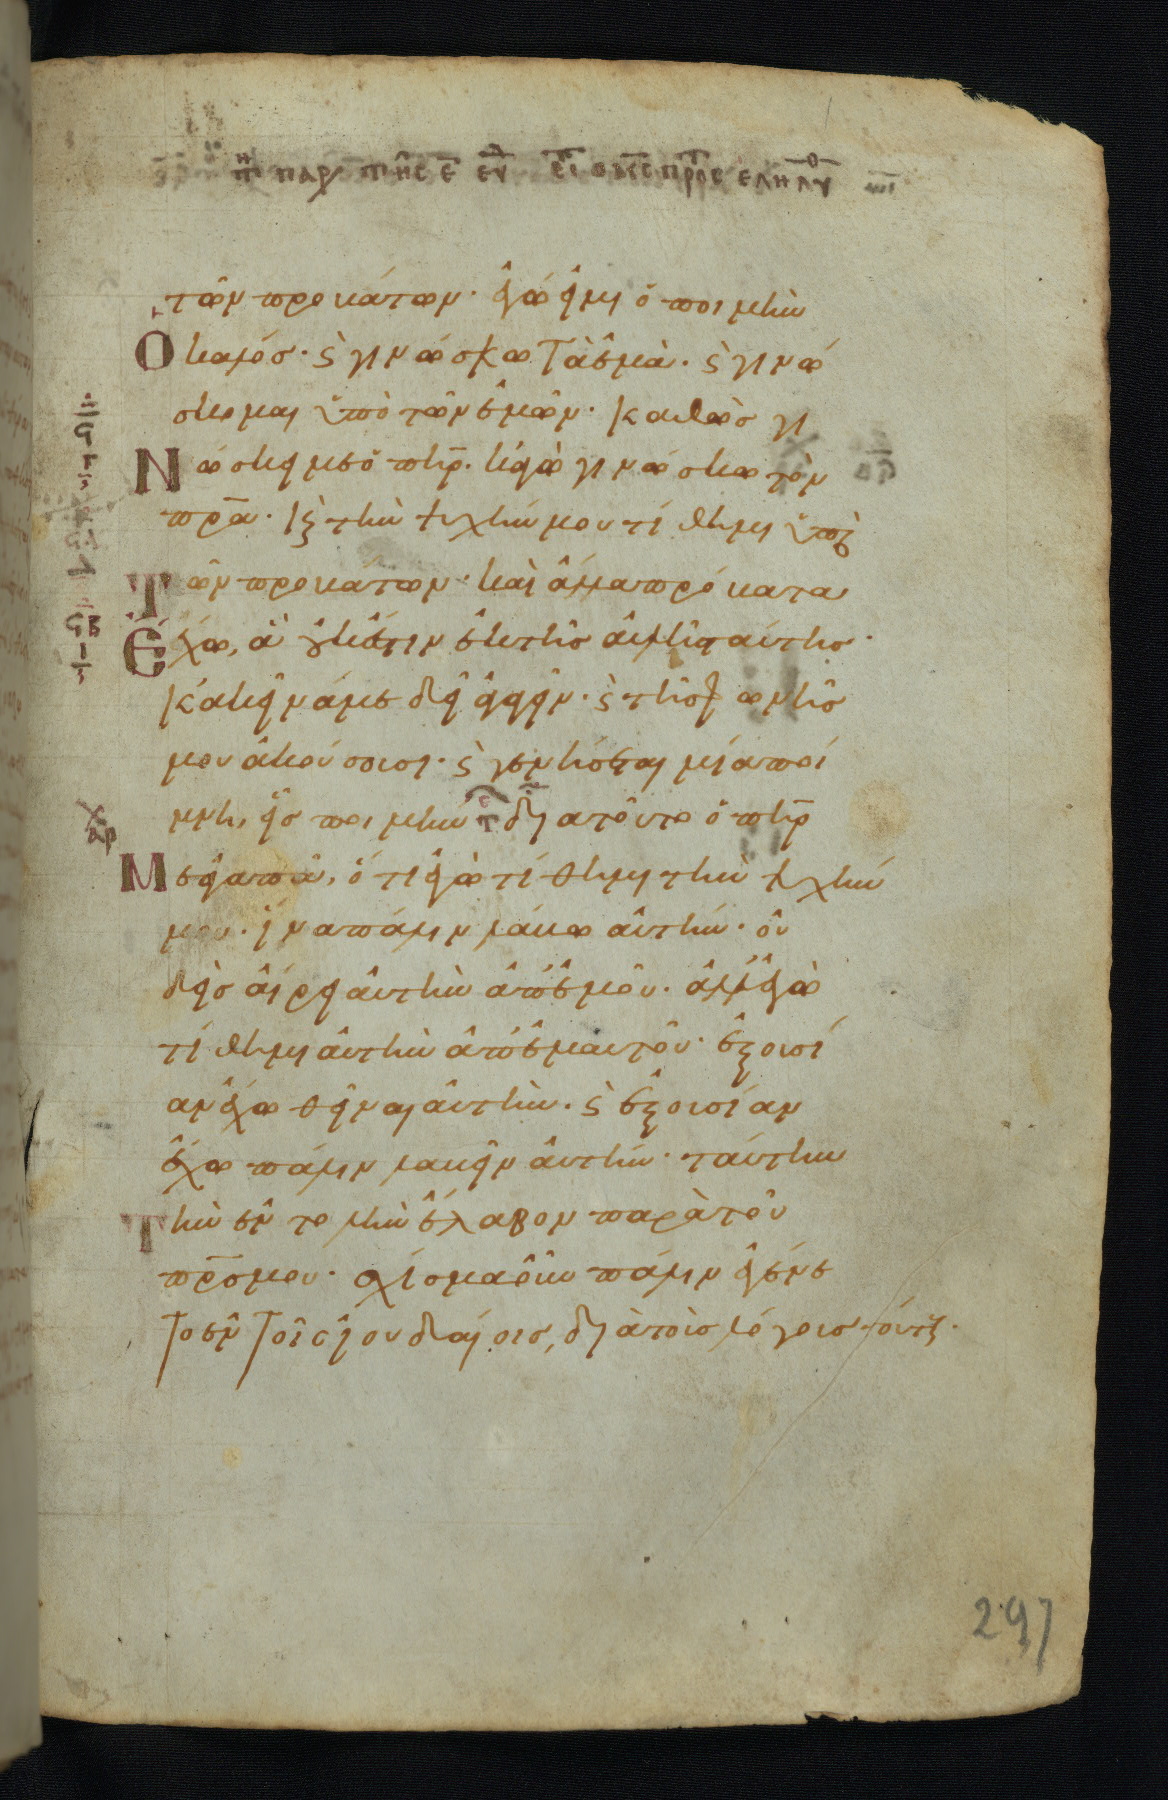 τῶν προβάτων· ἐγώ εἰμι ὁ ποιμὴν
Ὁ καλόσ· ϛ γινώσκω τὰ ἐμὰ· ϛ γινώ
σκομαι ὑπὸ τῶν ἐμῶν· καθὼσ γι
Νώσκει με ὁ πηρ̅· κἀγὼ γινώσκω τὸν
πρ̅α· κ τὴν ψυχήν μου τίθημι ὑπὲρ
Τῶν προβάτων· καὶ ἄλλα πρόβατα
Ἔχω, ἃ οὐκ ἔστιν ἐκ τῆσ αὐλῆσ ταύτησ·
κἀκεῖνά με δεῖ ἀγαγεῖν· ϛ τῆσ φωνῆσ
μου ἀκούσουσι· ϛ γενήσεται μία ποί
μνη, εἷσ ποιμήν διὰ τοῦτο ὁ πηρ̅
Με ἀγαπᾶ, ὅτι ἐγὼ τίθημι τὴν ψυχήν
μου· ἵνα πάλιν λάβω αὐτήν· οὐ
δεὶσ αἴρει αὐτὴν ἀπ' ἐμοῦ· ἀλλ' ἐγὼ
τίθημι αὐτὴν ἀπ' ἐμαυτοῦ· ἐξουσί
αν ἔχω θεῖναι αὐτὴν· ϛ ἐξουσίαν
ἔχω πάλιν λαβεῖν αὐτήν· ταύτην
Τὴν ἐντολὴν ἔλαβον παρὰ τοῦ
πρ̅σ μου· σχίσμα οὖν πάλιν ἐγένε
το ἐν τοῖς ἰουδαίοισ, διὰ τοὺσ λόγουσ τούτουσ·
297